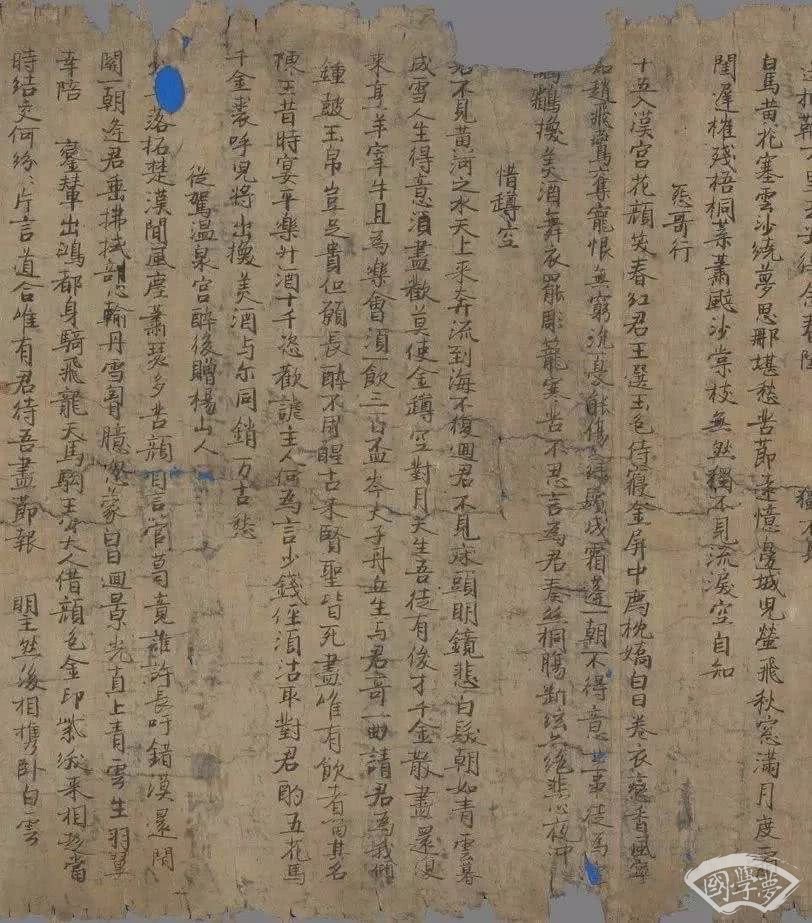 白馬黃花塞雲沙繞夢思那堪愁苦節遠憶邊城兒螢飛秋窓滿月度
閨遲摧殘梧桐葉蕭颯沙棠枝無然獨不見流淚空自知
怨哥行
十五入漢宮花顏笑春紅君王選玉色侍寢金屏中薦枕嬌白日卷衣戀春風寧
知趙飛鷰奪寵恨無窮沉憂能傷人綠鬢成霜蓬一朝不得意世事徒為空
鸘換美酒舞衣罷雕籠寒苦不忍言為君奏絲桐腸斷弦亦絕悲心夜忡
惜罇空
君不見黃河之水天上來奔流到海不復迴君不見床頭明鏡悲白髮朝如青雲暮
成雪人生得意須盡歡莫使金罇空對月天生吾徒有俊才千金散盡還復
來烹羊宰牛且為樂會須一飲三百盃岑夫子丹丘生與君哥一曲請君為我傾
鍾鼓玉帛豈足貴但願長醉不用醒古來賢聖皆死盡唯有飲者留其名
陳王昔時宴平樂斗酒十千恣歡謔主人何為言少錢徑須沽取對君酌五花馬
千金裘呼兒將出換美酒与尔同銷万古愁
從駕溫泉宮醉後贈楊山人
少年落拓楚漢間風塵蕭瑟多苦顏自言管葛竟誰許長吁錯漠還閇
關一朝逢君垂拂拭剖心輸丹雪胷臆忽蒙白日迴景光直上青雲生羽翼
幸陪 鑾輦出鴻都身騎飛龍天馬駒王公大人借顏色金印紫綬來相趍當
時結交何紛〻片言道合唯有君待吾盡節報 明主然後相攜臥白雲
國學夢